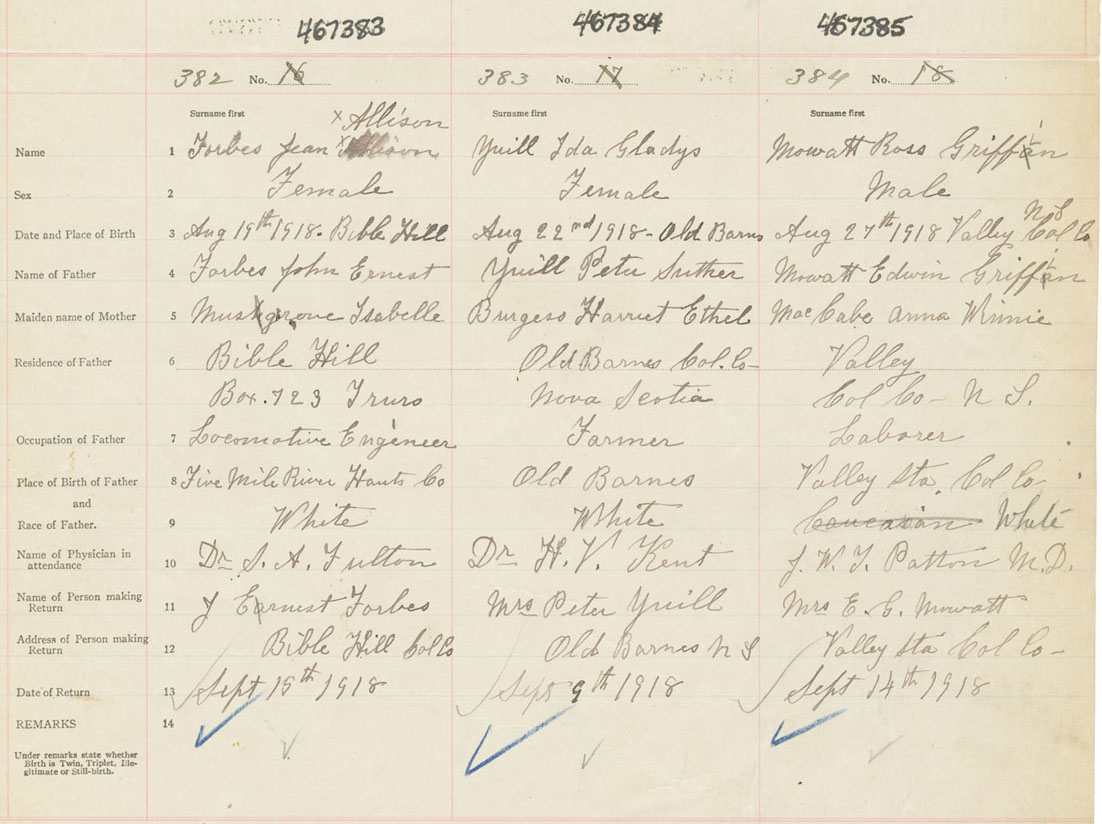 467383 467384 467385
382 No. 16 383 No. 17 384 No. 18
Surname first Surname first Surname first
x Allison
Name 1 Forbes Jean x Allison Yuill Ida Gladys Mowatt Ross Griffin
Sex 2 Female Female Male
N S
Date and Place of Birth 3 Aug 19th 1918. Bible Hill Aug 22nd 1918 - Old Barns Aug 27th 1918 Valley Col Co
Name of Father 4 Forbes John Ernest Yuill Peter Suther Mowatt Edwin Griffin
Maiden name of Mother 5 Musgrove Isabelle Burgess Harriet Ethel MacCabe Anna Winnie
Residence of Father 6 Bible Hill Old Barnes Col. Co- Valley
Box. 723 Truro Nova Scotia Col Co - N S.
Occupation of Father 7 Locomotive Engineer Farmer Laborer
Place of Birth of Father 8 Five Mile River Hants Co Old Barnes Valley Sta. Col Co
and
Race of Father. 9 White White Caucasian White
Name of Physician in
attendance 10 Dr S. A. Fulton Dr H. V. Kent J. W. T. Patton M.D.
Name of Person making
Return 11 J Earnest Forbes Mrs Peter Yuill Mrs E. G. Mowatt
Address of Person making
Return 12 Bible Hill Col Co Old Barnes N S Valley Sta Col Co -
Date of Return 13 Sept 15th 1918 Sept 9th 1918 Sept 14th 1918
REMARKS 14
Under remarks state whether
Birth is Twin, Triplet, Ille-
gitimate or Still-birth.